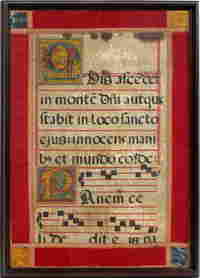 Quis ascedet
in monte Dñi aut quis
stabit in loco sancto
ejus: innocens mani
bus et mundo corde:
Panem ce
li de dit e is. Do